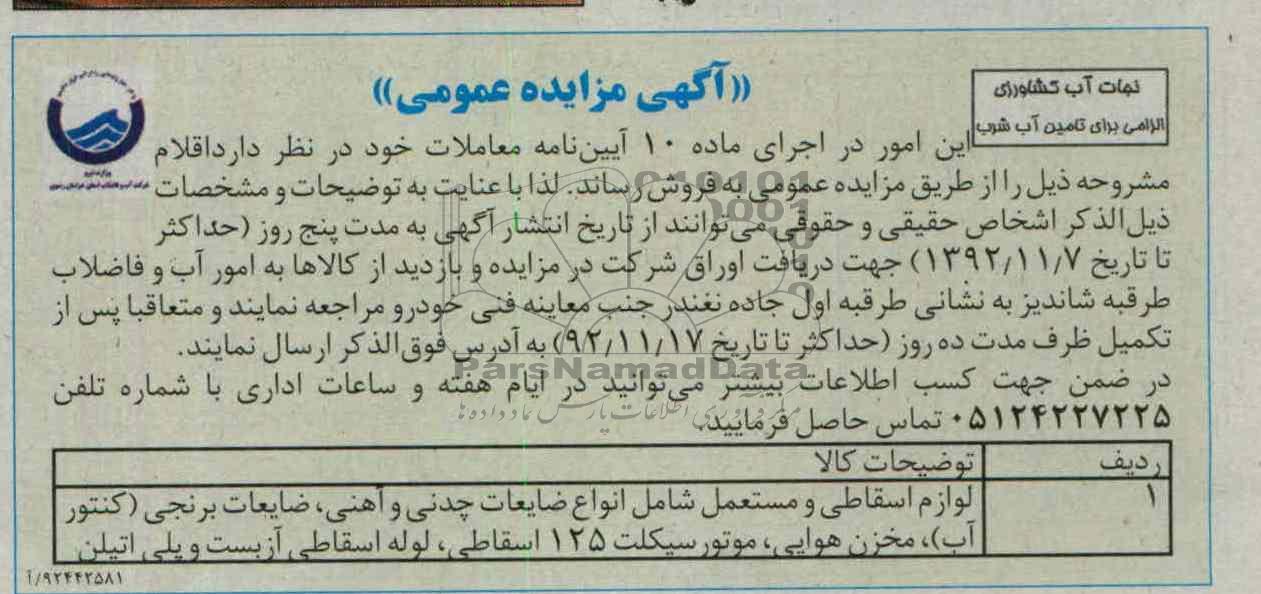 «آگهی مزایده عمومی»
نجات آب کشاورزی
الزامی برای تامین آب شرب
وزارت نیرو
این امور در اجرای ماده ۱۰ آیین‌نامه معاملات خود در نظر دارداقلام
مشروحه ذیل را از طریق مزایده عمومی به فروش رساند. لذا با عنایت به توضیحات و مشخصات
ذیل‌الذکر اشخاص حقیقی و حقوقی می‌توانند از تاریخ انتشار آگهی به مدت پنج روز (حداکثر
تا تاریخ ۱۳۹۲/۱۱/۷) جهت دریافت اوراق شرکت در مزایده و بازدید از کالاها به امور آب و فاضلاب
طرقبه شاندیز به نشانی طرقبه اول جاده نغندر جنب معاینه فنی خودرو مراجعه نمایند و متعاقبا پس از
تکمیل ظرف مدت ده روز (حداکثر تا تاریخ ۹۲/۱۱/۱۷) به آدرس فوق‌الذکر ارسال نمایند.
ParsNamadData
در ضمن جهت کسب اطلاعات بیشتر می‌توانید در ایام هفته و ساعات اداری با شماره تلفن
۰۵۱۲۴۲۲۷۲۲۵ تماس حاصل فرمایید.
ردیف توضیحات کالا
۱ لوازم اسقاطی و مستعمل شامل انواع ضایعات چدنی و آهنی، ضایعات برنجی (کنتور
آب)، مخزن هوایی، موتور سیکلت ۱۲۵ اسقاطی، لوله اسقاطی آزبست و پلی اتیلن
۹۲۴۴۲۵۸۱/آ